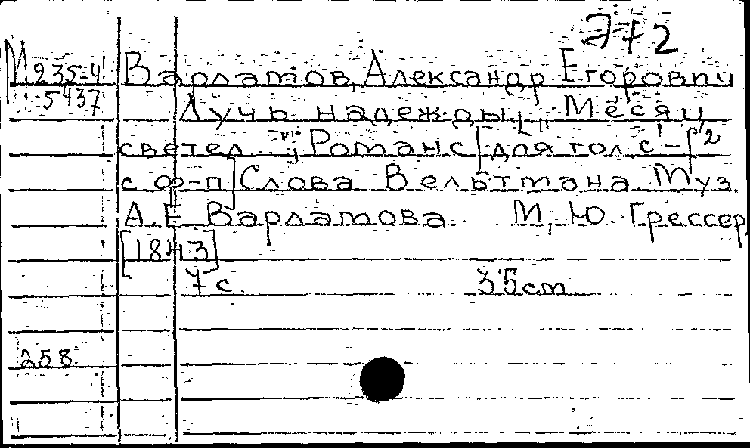 Э+2
М 235-4 Варламов, Александр Егорович
5437 Лучь надежды, [„Месяц
светел..."; Романс] для гол. с¹-f²
с ф-п] Слова Вельтмана Муз.
А. Е Варламова. М, Ю. Грессер,
[1843]
7 с. 35 cm
258